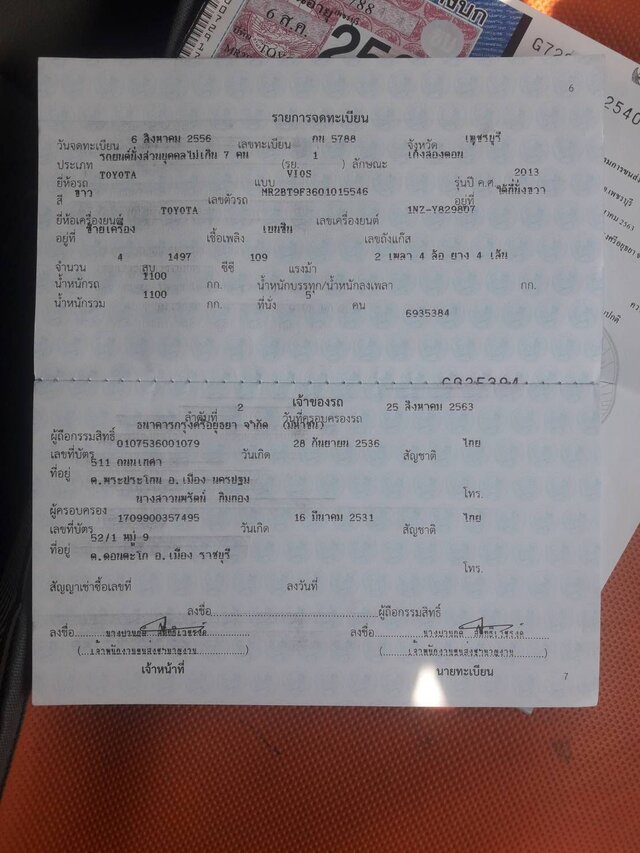 5788
6 ส.ค.
G72
2540
6
รายการจดทะเบียน
วันจดทะเบียน 6 สิงหาคม 2556 เลขทะเบียน กน 5788 จังหวัด เพชรบุรี
ประเภท รถยนต์นั่งส่วนบุคคลไม่เกิน 7 คน (รย. 1 ) ลักษณะ เก๋งสองตอน
ยี่ห้อรถ TOYOTA แบบ VIOS รุ่นปี ค.ศ. 2013
สี ขาว เลขตัวรถ MR2BT9F3601015546 อยู่ที่ ใต้ที่นั่งขวา
ยี่ห้อเครื่องยนต์ TOYOTA เลขเครื่องยนต์ 1NZ-Y829807
อยู่ที่ ซ้ายเครื่อง เชื้อเพลิง เบนซิน เลขถังแก๊ส
จำนวน 4 สูบ 1497 ซีซี 109 แรงม้า 2 เพลา 4 ล้อ ยาง 4 เส้น
น้ำหนักรถ 1100 กก. น้ำหนักบรรทุก/น้ำหนักลงเพลา กก.
น้ำหนักรวม 1100 กก. ที่นั่ง 5 คน
6935384
เจ้าของรถ
ลำดับที่ 2 วันที่ครอบครองรถ 25 สิงหาคม 2563
ผู้ถือกรรมสิทธิ์ ธนาคารกรุงศรีอยุธยา จำกัด (มหาชน)
เลขที่บัตร 0107536001079 วันเกิด 28 กันยายน 2536 สัญชาติ ไทย
ที่อยู่ 511 ถนนเทศา
ต.พระประโทน อ.เมือง นครปฐม
โทร.
ผู้ครอบครอง นางสาวนพรัตน์ ทิมทอง
เลขที่บัตร 1709900357495 วันเกิด 16 มีนาคม 2531 สัญชาติ ไทย
ที่อยู่ 52/1 หมู่ 9
ต.ดอนตะโก อ.เมือง ราชบุรี
โทร.
สัญญาเช่าซื้อเลขที่ ลงวันที่
ลงชื่อ ผู้ถือกรรมสิทธิ์
ลงชื่อ ลงชื่อ
(เจ้าพนักงานขนส่งชำนาญงาน) (เจ้าพนักงานขนส่งชำนาญงาน)
เจ้าหน้าที่ นายทะเบียน
7